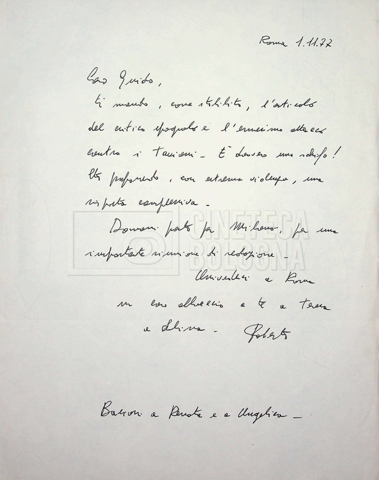 Roma 1.11.77
Caro Guido,
ti mando, come stabilito, l'articolo
del critico spagnolo e l'ennesimo attacco
contro i Taviani - È davvero uno schifo!
Sto preparando, con estrema violenza, una
risposta complessiva -
Domani parto per Milano, per una
importante riunione di redazione -
a Roma
un caro abbraccio a te a Teresa
a
Roberto
Bacioni a Renata e a Angelica -
CINETECA
BOLOGNA